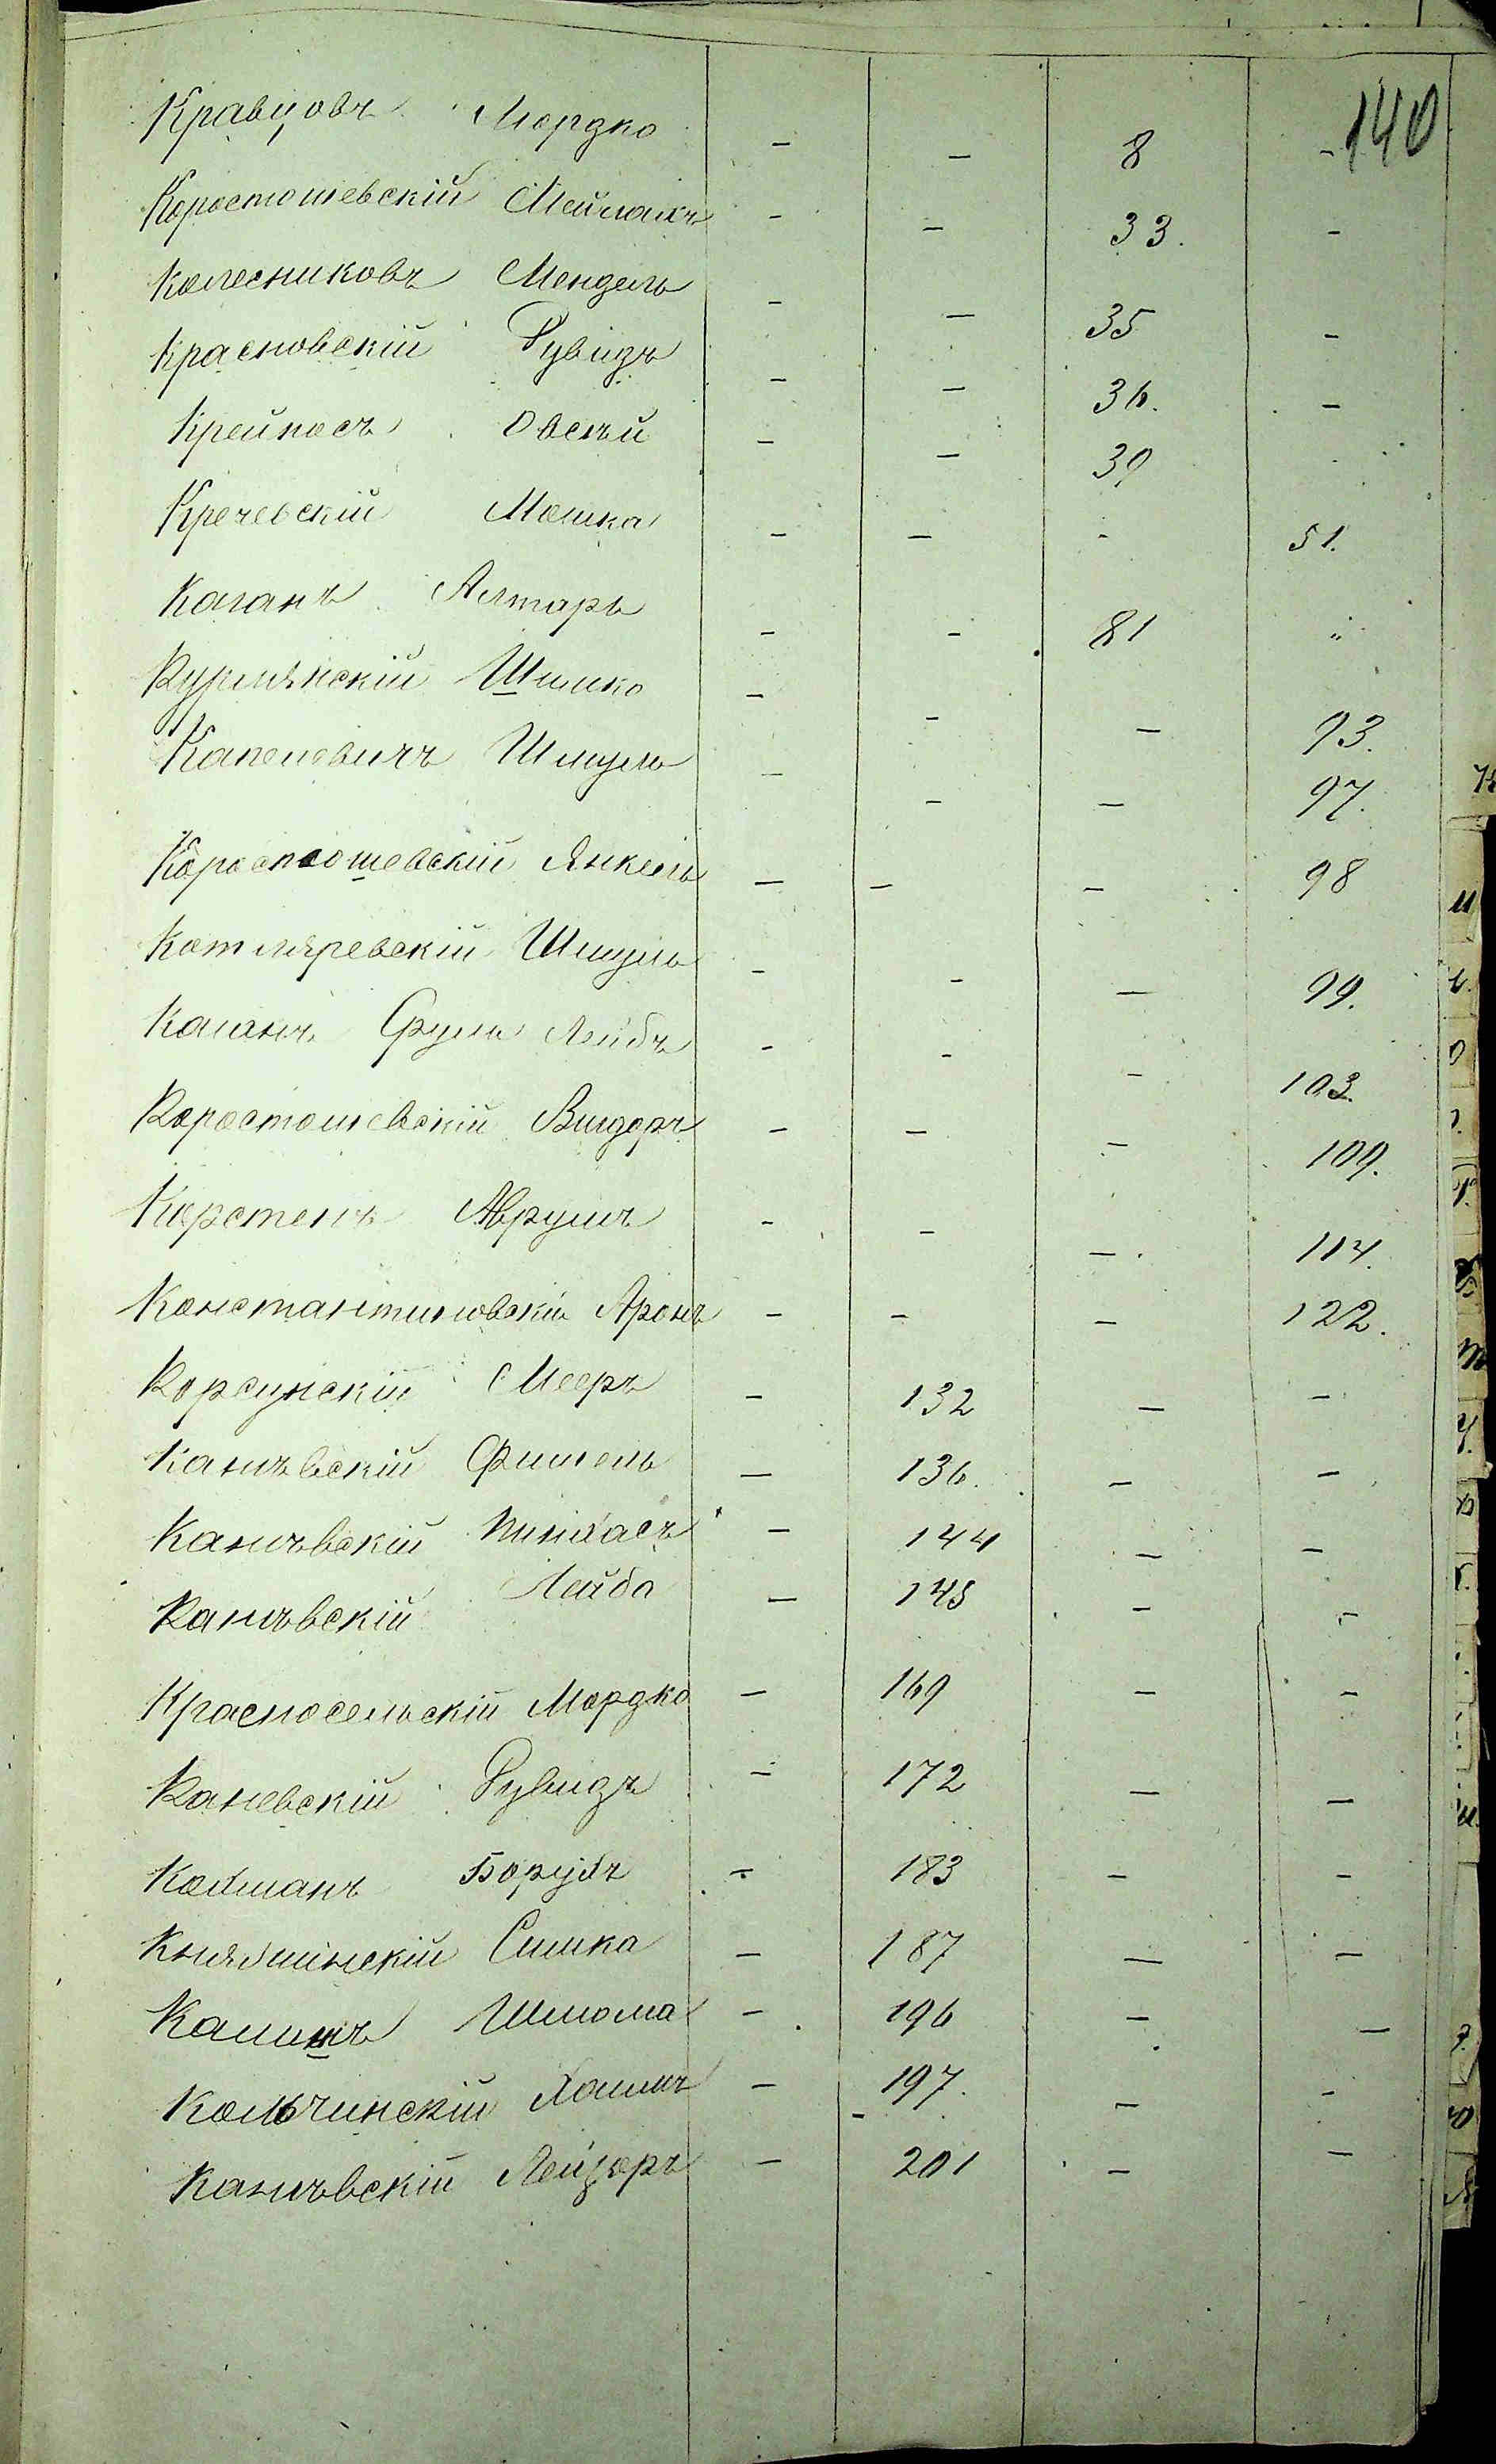 140
Кравцовъ Мордко — — 8 -
Коростошевскій Мейлахъ - — 33. -
Колесниковъ Мендель - — 35 -
Красновскій Рувидъ — — 36. —
Крейносъ Овсѣй - — 39
Кречевскій Мошка - — - 51.
Каганъ Алтаръ - - 81 "
Курлянскій Шимко — - — 93.
Капелевичъ Шмуль — - — 97.
Коростошевскій Янкель — — — 98
Котляревскій Шмуль - - — 99.
Каганъ Срулъ Лейбъ - - - 103.
Коростошевскій Вигдоръ - — - 109.
Керстенъ Аврумъ - - — 114.
Константиновскій Аронъ - - — 122.
Корсунскій Мееръ - 132 — -
Канѣвскій Фишель — 136. — —
Канѣвскій Пинхасъ — 144 — —
Канѣвскій Лейба — 145 - -
Красносельскій Мордко — 169 — —
Каневскій Рувидъ — 172 — —
Кохманъ Борухъ - 183 — -
Княхинскій Симха — 187 — —
Шлюма — 196 — —
Кольчинскій Хаимъ — 197. — -
Канѣвскій Лейзоръ — 201 — —